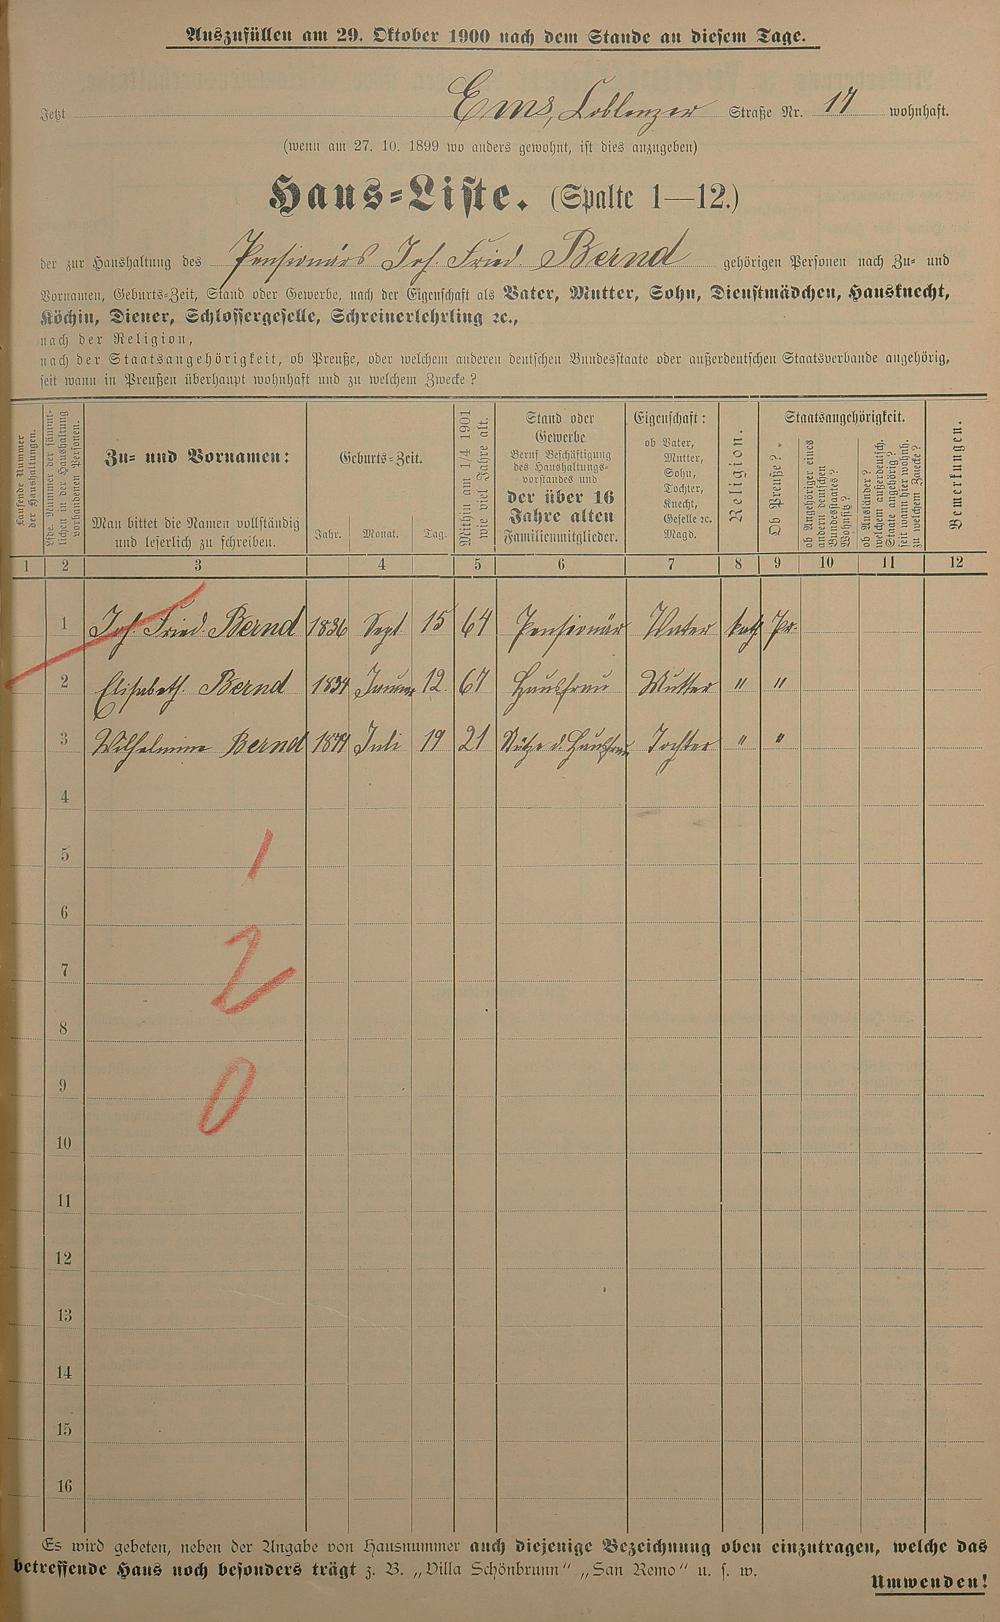 Auszufüllen am 29. Oktober 1900 nach dem Stande an diesem Tage.
Jetzt Ems, Coblenzer Straße Nr. 17 wohnhaft.
(wenn am 27. 10. 1899 wo anders gewohnt, ist dies anzugeben)
Haus-Liste. (Spalte 1—12.)
der zur Haushaltung des Pensionärs Joh. Fried. Bernd gehörigen Personen nach Zu- und
Vornamen, Geburts-Zeit, Stand oder Gewerbe, nach der Eigenschaft als Vater, Mutter, Sohn, Dienstmädchen, Hausknecht,
Köchin, Diener, Schlossergeselle, Schreinerlehrling ꝛc.,
nach der Religion,
nach der Staatsangehörigkeit, ob Preuße, oder welchem anderen deutschen Bundesstaate oder außerdeutschen Staatsverbande angehörig,
seit wann in Preußen überhaupt wohnhaft und zu welchem Zwecke?
Laufende Nummer
der Haushaltungen.
Lfde. Nummer der sämmt-
lichen in der Haushaltung
vorhandenen Personen.
Zu- und Vornamen:
Man bittet die Namen vollständig
und leserlich zu schreiben.
Geburts-Zeit.
Jahr. Monat. Tag.
Mithin am 1/4 1901
wie viel Jahre alt.
Stand oder
Gewerbe
Beruf Beschäftigung
des Haushaltungs-
vorstandes und
der über 16
Jahre alten
Familienmitglieder.
Eigenschaft:
ob Vater,
Mutter,
Sohn,
Tochter,
Knecht,
Geselle ꝛc.
Magd.
Religion.
Staatsangehörigkeit.
Ob Preuße?
ob Angehöriger eines
andern deutschen
Bundesstaates?
Wohnsitz?
ob Ausländer?
welchem außerdeutsch.
Staate angehörig?
seit wann hier wohnh.
zu welchem Zwecke?
Bemerkungen.
1 2 3 4 5 6 7 8 9 10 11 12
1 Joh. Fried. Bernd 1836 Sept. 15 64 Pensionär Vater kath. Pr.
2 Elisabeth Bernd 1834 Januar 12 67 Hausfrau Mutter " "
3 Wilhelmine Bernd 1879 Juli 19 21 Stütze d. Hausfrau Tochter " "
4
5
1
6
7
2
8
9
0
10
11
12
13
14
15
16
Es wird gebeten, neben der Angabe von Hausnummer auch diejenige Bezeichnung oben einzutragen, welche das
betreffende Haus noch besonders trägt z. B. „Villa Schönbrunn" „San Remo" u. s. w.
Umwenden!